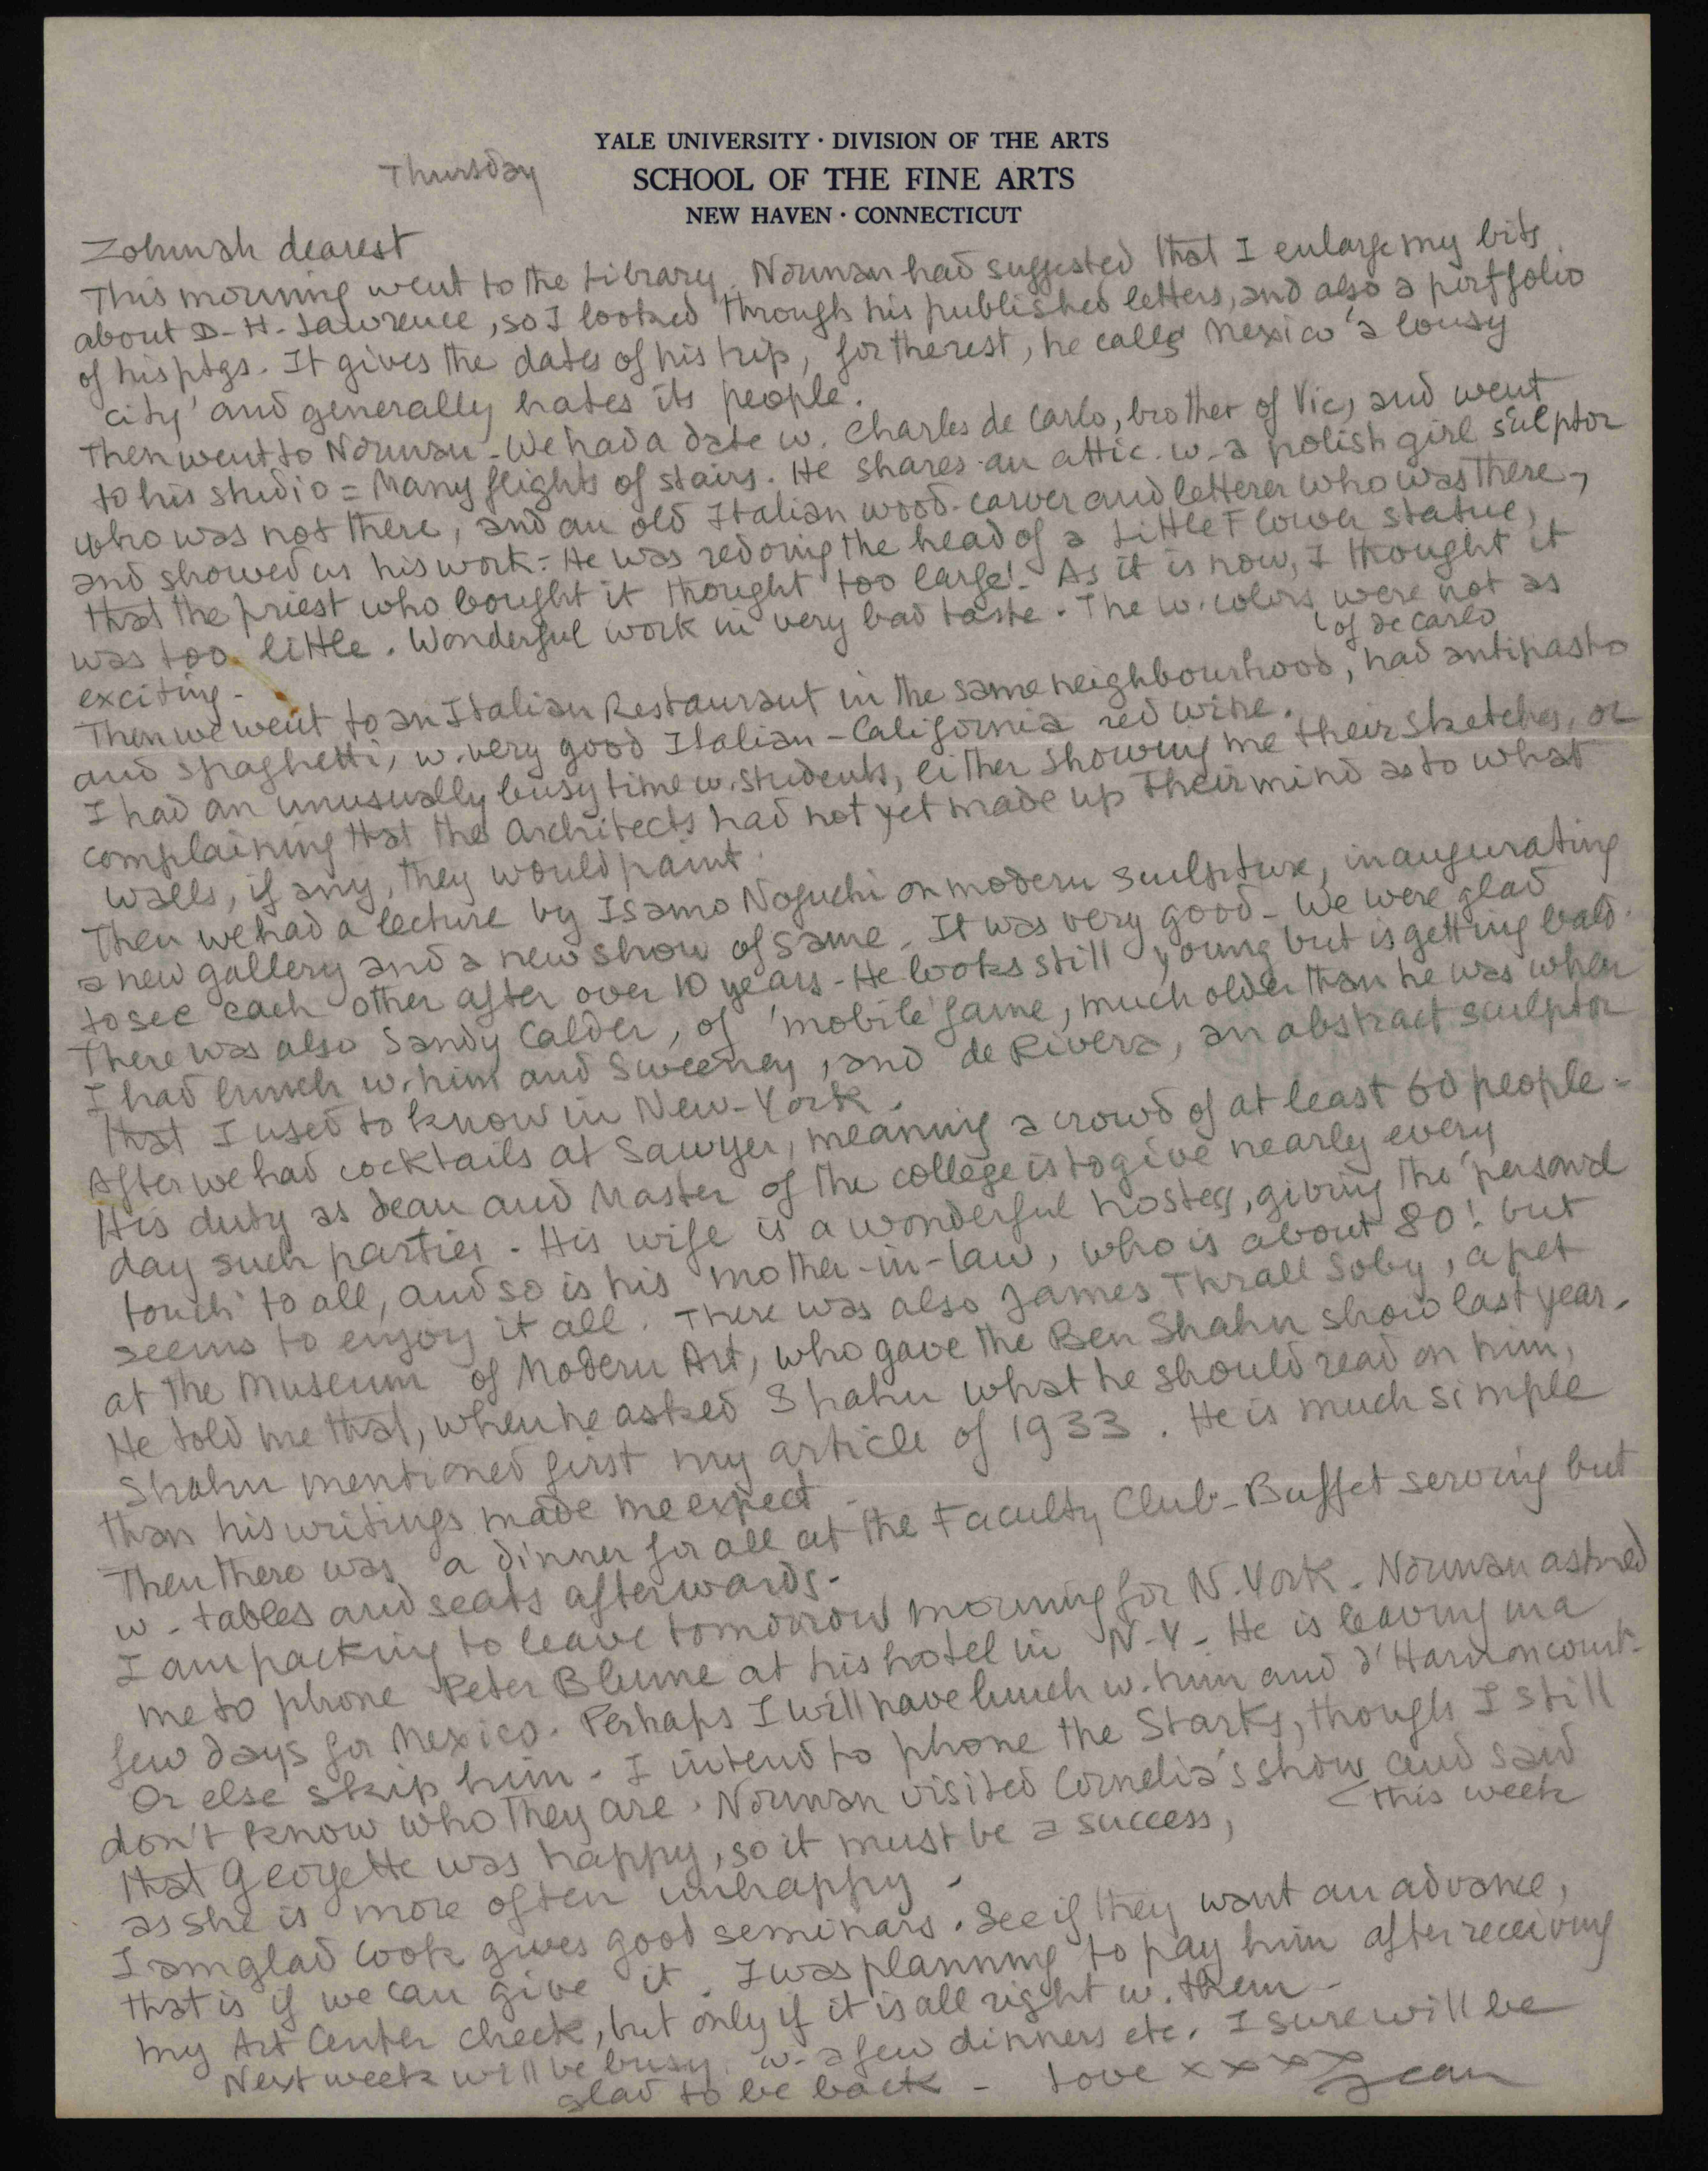 YALE UNIVERSITY · DIVISION OF THE ARTS
SCHOOL OF THE FINE ARTS
NEW HAVEN · CONNECTICUT
Thursday
Zohmah dearest
This morning went to the Library. Norman had suggested that I enlarge my bits
about D-H-Lawrence, so I looked through his published letters, and also a portfolio
of his ptgs. It gives the dates of his trip, for the rest, he calls Mexico 'a lousy
city' and generally hates its people.
Then went to Norman - We had a date w. Charles de Carlo, brother of Vic, and went
to his studio = Many flights of stairs. He shares an attic w. a polish girl sculptor
who was not there, and an old Italian wood-carver and letterer who was there,
and showed us his work - He was redoing the head of a Little Flower statue,
that the priest who bought it thought too large! - As it is now, I thought it
was too little. Wonderful work in very bad taste. The w. colors were not as
of de Carlo
exciting -
Then we went to an Italian Restaurant in the same neighbourhood, had antipasto
and spaghetti, w. very good Italian-California red wine.
I had an unusually busy time w. students, either showing me their sketches, or
complaining that the Architects had not yet made up their mind as to what
walls, if any, they would paint.
Then we had a lecture by Isamo Noguchi on modern sculpture, inaugurating
a new gallery and a new show of same. It was very good - We were glad
to see each other after over 10 years - He looks still young but is getting bald.
There was also Sandy Calder, of 'mobile' fame, much older than he was when
I had lunch w. him and Sweeney, and de Rivera, an abstract sculptor
that I used to know in New-York.
After we had cocktails at Sawyer, meaning a crowd of at least 60 people -
His duty as dean and Master of the college is to give nearly every
day such parties - His wife is a wonderful hostess, giving the 'personal
touch' to all, and so is his mother-in-law, who is about 80! but
seems to enjoy it all. There was also James Thrall Soby, a pet
at the Museum of Modern Art, who gave the Ben Shahn show last year.
He told me that, when he asked Shahn what he should read on him,
Shahn mentioned first my article of 1933. He is much simple
than his writings made me expect -
Then there was a dinner for all at the Faculty Club - Buffet serving but
w - tables and seats afterwards -
I am packing to leave tomorrow morning for N. York - Norman asked
me to phone Peter Blume at his hotel in N-Y - He is leaving in a
few days for Mexico. Perhaps I will have lunch w. him and d'Harnoncourt -
Or else skip him - I intend to phone the Starks, though I still
don't know who they are. Norman visited Cornelia's show and said
this week
that Georgette was happy, so it must be a success,
as she is more often unhappy -
I am glad Cook gives good seminars. See if they want an advance,
that is if we can give it. I was planning to pay him after receiving
my Art Center check, but only if it is all right w. them -
Next week will be busy w - a few dinners etc. I sure will be
glad to be back - Love x x x x Jean